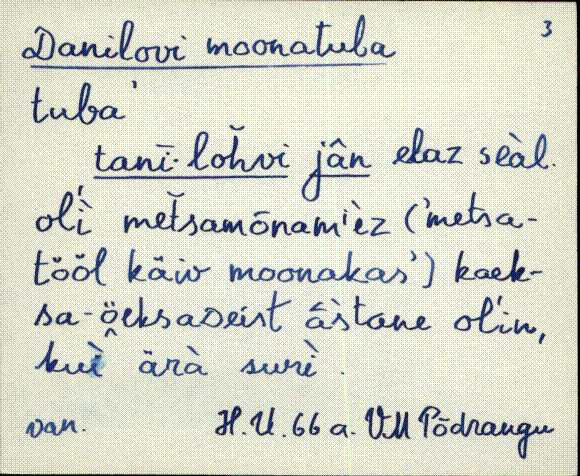 Danilovi moonatuba 3
tuba'
tani·lohvi jân elaz seàl.
oĺì metsamõnamièz ('metsa-
tööl käiv moonakas') kaek-
sa-öeksaDeist âstane oĺin,
kuì ärà surì.
van. H.U. 66 a. VM Põdrangu